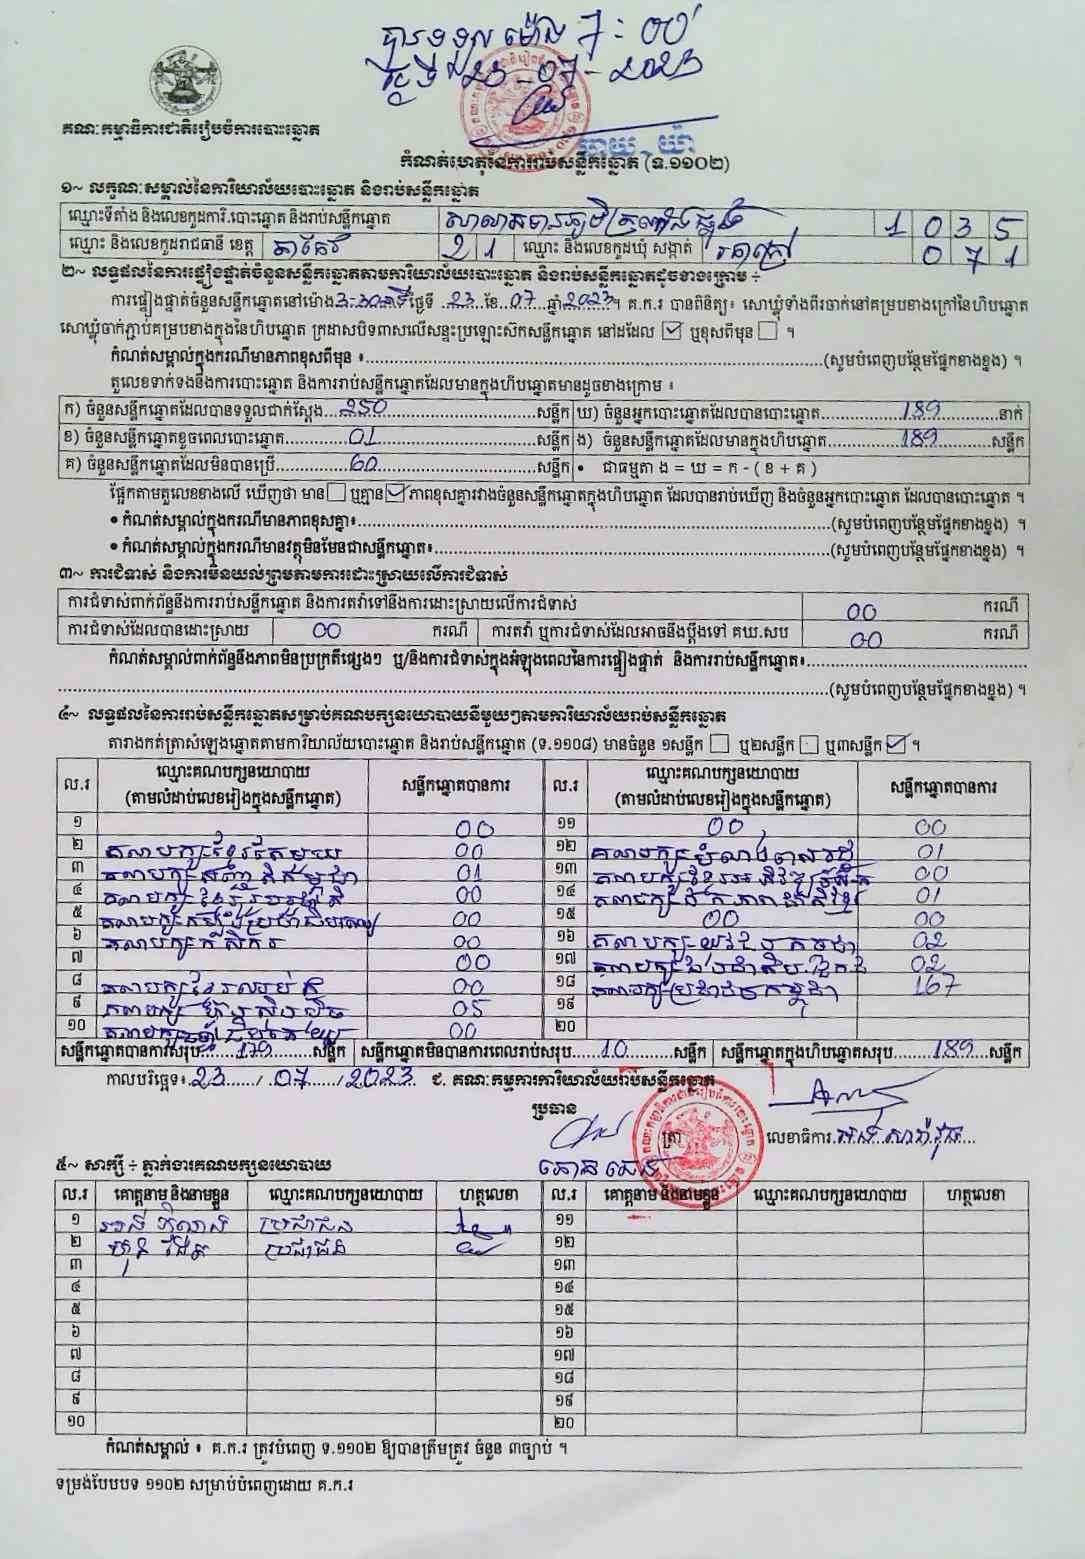 បានទទួល ម៉ោង 7:00
ថ្ងៃទី 23-07-2023
គណៈកម្មាធិការជាតិរៀបចំការបោះឆ្នោត
ឆាយ យ៉ា
កំណត់ហេតុនៃការរាប់សន្លឹកឆ្នោត (ទ.១១០២)
១~ លក្ខណៈសម្គាល់នៃការិយាល័យបោះឆ្នោត និងរាប់សន្លឹកឆ្នោត
ឈ្មោះទីតាំង និងលេខកូដការិ.បោះឆ្នោត និងរាប់សន្លឹកឆ្នោត 1035
ឈ្មោះ និងលេខកូដរាជធានី ខេត្ត តាកែវ 21 ឈ្មោះ និងលេខកូដឃុំ សង្កាត់ 071
២~ លទ្ធផលនៃការផ្ទៀងផ្ទាត់ចំនួនសន្លឹកឆ្នោតតាមការិយាល័យបោះឆ្នោត និងរាប់សន្លឹកឆ្នោតដូចខាងក្រោម ÷
ការផ្ទៀងផ្ទាត់ចំនួនសន្លឹកឆ្នោតនៅម៉ោង 3-30នាទី ថ្ងៃទី 23 ខែ 07 ឆ្នាំ 2023 ។ គ.ក.រ បានពិនិត្យ៖ សោឃ្លុំទាំងពីរចាក់នៅគម្របខាងក្រៅនៃហិបឆ្នោត
សោឃ្លុំចាក់ភ្ជាប់គម្របខាងក្នុងនៃហិបឆ្នោត ក្រដាសបិទពាសលើសន្ទះប្រឡោះស៊កសន្លឹកឆ្នោត នៅដដែល ☑ ឬខុសពីមុន ☐ ។
កំណត់សម្គាល់ក្នុងករណីមានភាពខុសពីមុន ៖ (សូមបំពេញបន្ថែមផ្នែកខាងខ្នង) ។
តួលេខទាក់ទងនឹងការបោះឆ្នោត និងការរាប់សន្លឹកឆ្នោតដែលមានក្នុងហិបឆ្នោតមានដូចខាងក្រោម ៖
ក) ចំនួនសន្លឹកឆ្នោតដែលបានទទួលជាក់ស្តែង 250 សន្លឹក ឃ) ចំនួនអ្នកបោះឆ្នោតដែលបានបោះឆ្នោត 189 នាក់
ខ) ចំនួនសន្លឹកឆ្នោតខូចពេលបោះឆ្នោត 01 សន្លឹក ង) ចំនួនសន្លឹកឆ្នោតដែលមានក្នុងហិបឆ្នោត 189 សន្លឹក
គ) ចំនួនសន្លឹកឆ្នោតដែលមិនបានប្រើ 60 សន្លឹក • ជាធម្មតា ង = ឃ = ក - ( ខ + គ )
ផ្អែកតាមតួលេខខាងលើ ឃើញថា មាន ☐ ឬគ្មាន ☑ ភាពខុសគ្នារវាងចំនួនសន្លឹកឆ្នោតក្នុងហិបឆ្នោត ដែលបានរាប់ឃើញ និងចំនួនអ្នកបោះឆ្នោត ដែលបានបោះឆ្នោត ។
• កំណត់សម្គាល់ក្នុងករណីមានភាពខុសគ្នា៖ (សូមបំពេញបន្ថែមផ្នែកខាងខ្នង) ។
• កំណត់សម្គាល់ក្នុងករណីមានវត្ថុមិនមែនជាសន្លឹកឆ្នោត៖ (សូមបំពេញបន្ថែមផ្នែកខាងខ្នង) ។
៣~ ការជំទាស់ និងការមិនយល់ព្រមតាមការដោះស្រាយលើការជំទាស់
ការជំទាស់ពាក់ព័ន្ធនឹងការរាប់សន្លឹកឆ្នោត និងការតវ៉ាទៅនឹងការដោះស្រាយលើការជំទាស់ 00 ករណី
ការជំទាស់ដែលបានដោះស្រាយ 00 ករណី ការតវ៉ា ឬការជំទាស់ដែលអាចនឹងប្តឹងទៅ គឃ.សប 00 ករណី
កំណត់សម្គាល់ពាក់ព័ន្ធនឹងភាពមិនប្រក្រតីផ្សេងៗ ឬ/និងការជំទាស់ក្នុងអំឡុងពេលនៃការផ្ទៀងផ្ទាត់ និងការរាប់សន្លឹកឆ្នោត៖
(សូមបំពេញបន្ថែមផ្នែកខាងខ្នង) ។
៤~ លទ្ធផលនៃការរាប់សន្លឹកឆ្នោតសម្រាប់គណបក្សនយោបាយនីមួយៗតាមការិយាល័យរាប់សន្លឹកឆ្នោត
តារាងកត់ត្រាសំឡេងឆ្នោតតាមការិយាល័យបោះឆ្នោត និងរាប់សន្លឹកឆ្នោត (ទ.១១០៨) មានចំនួន ១សន្លឹក ☐ ឬ២សន្លឹក ☐ ឬ៣សន្លឹក ☑ ។
ល.រ ឈ្មោះគណបក្សនយោបាយ (តាមលំដាប់លេខរៀងក្នុងសន្លឹកឆ្នោត) សន្លឹកឆ្នោតបានការ ល.រ ឈ្មោះគណបក្សនយោបាយ (តាមលំដាប់លេខរៀងក្នុងសន្លឹកឆ្នោត) សន្លឹកឆ្នោតបានការ
១ 00 ១១ 00 00
២ គណបក្សខ្មែរតែមួយ 00 ១២ គណបក្ស 01
៣ គណបក្ស 01 ១៣ គណបក្សខ្មែរអភិវឌ្ឍន៍សេដ្ឋកិច្ច 00
៤ គណបក្សខ្មែររួបរួមជាតិ 00 ១៤ គណបក្ស 01
៥ គណបក្ស 00 ១៥ 00 00
៦ គណបក្សកសិករ 00 ១៦ គណបក្សយុវជនកម្ពុជា 02
៧ 00 ១៧ គណបក្ស 02
៨ គណបក្ស 00 ១៨ គណបក្សប្រជាជនកម្ពុជា 167
៩ គណបក្សហ៊្វុនស៊ិនប៉ិច 05 ១៩
១០ គណបក្ស 00 ២០
សន្លឹកឆ្នោតបានការសរុប 179 សន្លឹក សន្លឹកឆ្នោតមិនបានការពេលរាប់សរុប 10 សន្លឹក សន្លឹកឆ្នោតក្នុងហិបឆ្នោតសរុប 189 សន្លឹក
កាលបរិច្ឆេទ៖ 23 / 07 / 2023 ជ. គណៈកម្មការការិយាល័យរាប់សន្លឹកឆ្នោត
ប្រធាន
ត្រា លេខាធិការ
៥~ សាក្សី ÷ ភ្នាក់ងារគណបក្សនយោបាយ
ល.រ គោត្តនាម និងនាមខ្លួន ឈ្មោះគណបក្សនយោបាយ ហត្ថលេខា ល.រ គោត្តនាម និងនាមខ្លួន ឈ្មោះគណបក្សនយោបាយ ហត្ថលេខា
១ ប្រជាជន ១១
២ ប្រជាជន ១២
៣ ១៣
៤ ១៤
៥ ១៥
៦ ១៦
៧ ១៧
៨ ១៨
៩ ១៩
១០ ២០
កំណត់សម្គាល់ ៖ គ.ក.រ ត្រូវបំពេញ ទ.១១០២ ឱ្យបានត្រឹមត្រូវ ចំនួន ៣ច្បាប់ ។
ទម្រង់បែបបទ ១១០២ សម្រាប់បំពេញដោយ គ.ក.រ